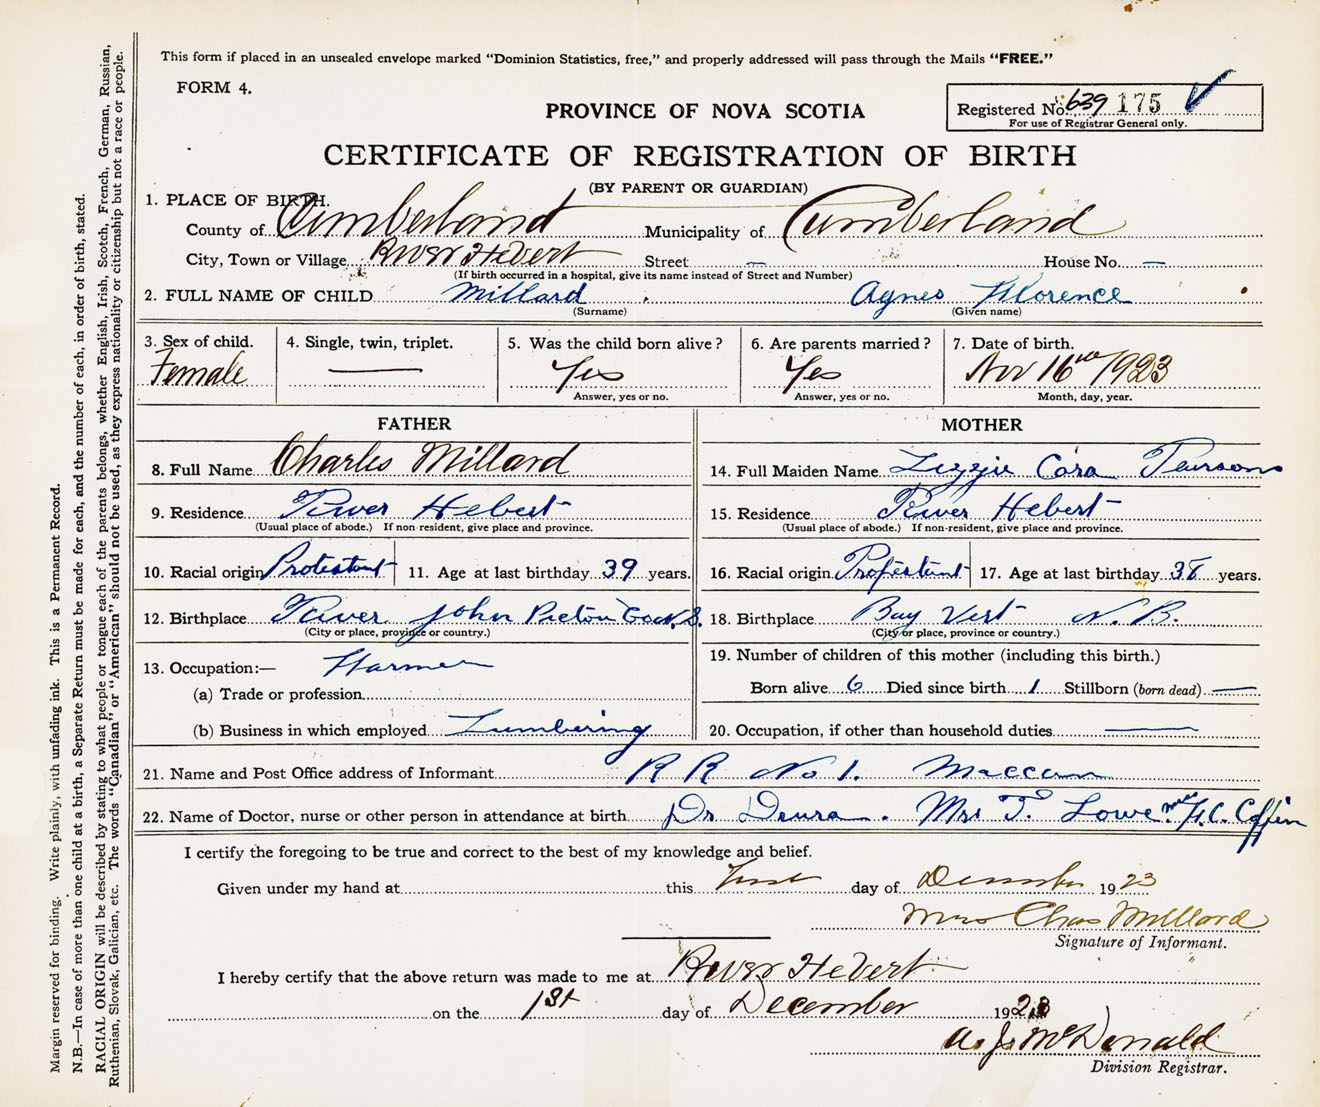 This form if placed in an unsealed envelope marked "Dominion Statistics, free," and properly addressed will pass through the Mails "FREE."
FORM 4.
PROVINCE OF NOVA SCOTIA
Registered No. 639 175 ✓
For use of Registrar General only.
CERTIFICATE OF REGISTRATION OF BIRTH
(BY PARENT OR GUARDIAN)
1. PLACE OF BIRTH.
County of Cumberland Municipality of Cumberland
City, Town or Village River Hebert Street — House No. —
(If birth occurred in a hospital, give its name instead of Street and Number)
2. FULL NAME OF CHILD Millard Agnes Florence
(Surname) (Given name)
3. Sex of child. 4. Single, twin, triplet. 5. Was the child born alive? 6. Are parents married? 7. Date of birth.
Female — Yes Yes Nov 16th/1923
Answer, yes or no. Answer, yes or no. Month, day, year.
FATHER MOTHER
8. Full Name Charles Millard 14. Full Maiden Name Lizzie Cora Pearsons
9. Residence River Hebert 15. Residence River Hebert
(Usual place of abode.) If non-resident, give place and province. (Usual place of abode.) If non-resident, give place and province.
10. Racial origin Protestant 11. Age at last birthday 39 years. 16. Racial origin Protestant 17. Age at last birthday 38 years.
12. Birthplace River John Pictou Co N.S. 18. Birthplace Bay Vert N.B.
(City or place, province or country.) (City or place, province or country.)
13. Occupation:— Farmer 19. Number of children of this mother (including this birth.)
(a) Trade or profession Born alive 6 Died since birth 1 Stillborn (born dead) —
(b) Business in which employed Lumbering 20. Occupation, if other than household duties —
21. Name and Post Office address of Informant R R No 1. Maccan
22. Name of Doctor, nurse or other person in attendance at birth Dr Mrs T. Lowe. Mrs H.C. Coffin
I certify the foregoing to be true and correct to the best of my knowledge and belief.
Given under my hand at this first day of December 1923
Mrs Chas Millard
Signature of Informant.
I hereby certify that the above return was made to me at River Hebert
on the 1st day of December 1923
A. J. McDonald
Division Registrar.
Margin reserved for binding. Write plainly, with unfading ink. This is a Permanent Record.
N.B.—In case of more than one child at a birth, a Separate Return must be made for each, and the number of each, in order of birth, stated.
RACIAL ORIGIN will be described by stating to what people or tongue each of the parents belongs, whether English, Irish, Scotch, French, German, Russian,
Ruthenian, Slovak, Galician, etc. The words "Canadian" or "American" should not be used, as they express nationality or citizenship but not a race or people.